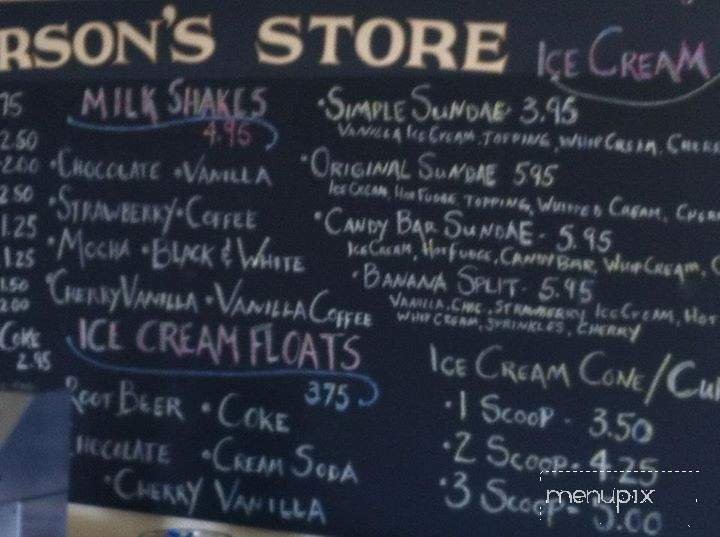 RSON'S STORE
ICE CREAM
75
2.50
2.00
2.50
1.25
1.25
1.50
2.00
COKE
2.95
MILK SHAKES
4.95
•CHOCOLATE •VANILLA
•STRAWBERRY•COFFEE
•MOCHA •BLACK & WHITE
•CHERRY VANILLA •VANILLA COFFEE
ICE CREAM FLOATS
375
ROOT BEER •COKE
HOCOLATE •CREAM SODA
•CHERRY VANILLA
•SIMPLE SUNDAE• 3.95
VANILLA ICE CREAM, TOPPING, WHIP CREAM, CHERR
•ORIGINAL SUNDAE 595
ICE CREAM, HOT FUDGE TOPPING, WHIPPED CREAM, CHERR
•CANDY BAR SUNDAE- 5.95
ICE CREAM, HOT FUDGE, CANDY BAR, WHIP CREAM, C
•BANANA SPLIT- 5.95
VANILLA, CHOC, STRAWBERRY ICE CREAM, HOT
WHIP CREAM, SPRINKLES, CHERRY
ICE CREAM CONE/CU
•1 SCOOP - 3.50
•2 SCOOP- 4.25
•3 SCOOP- 5.00
menupix